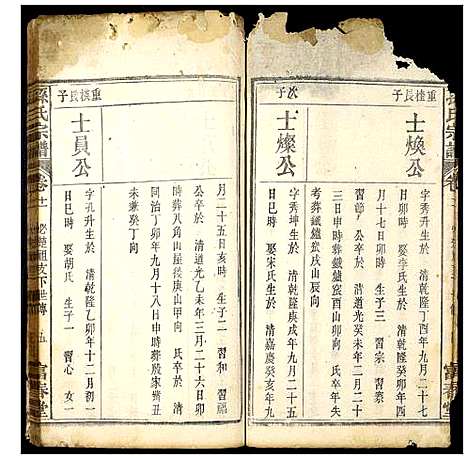 重桂長子
士煥公
字秀升生於 清乾隆丁酉年九月二十七
日卯時 娶李氏生於 清乾隆癸卯年十
月十七日卯時 生子三 習宗 習察
習節 公卒於 清道光癸未年二月二十
三日申時葬鐵爐窑酉山卯向 氏卒年失
考葬鐵爐窑戌山辰向
次子
士燦公
字秀坤生於 清乾隆庚戌年九月二十一
日巳時 娶宋氏生於 清嘉慶癸亥年九
月二十五日亥時 生子二 習和 習福
公卒於 清道光乙未年三月二十六日卯
時葬八角山屋後庚山甲向 氏卒於 清
同治丁卯年九月十八日申時葬殷家灣丑
未兼癸丁向
重桂長子
士員公
字孔升生於 清乾隆乙卯年十二月初一
日巳時 娶胡氏 生子一 習心 女一
孫氏宗譜
卷十一
五
富春堂